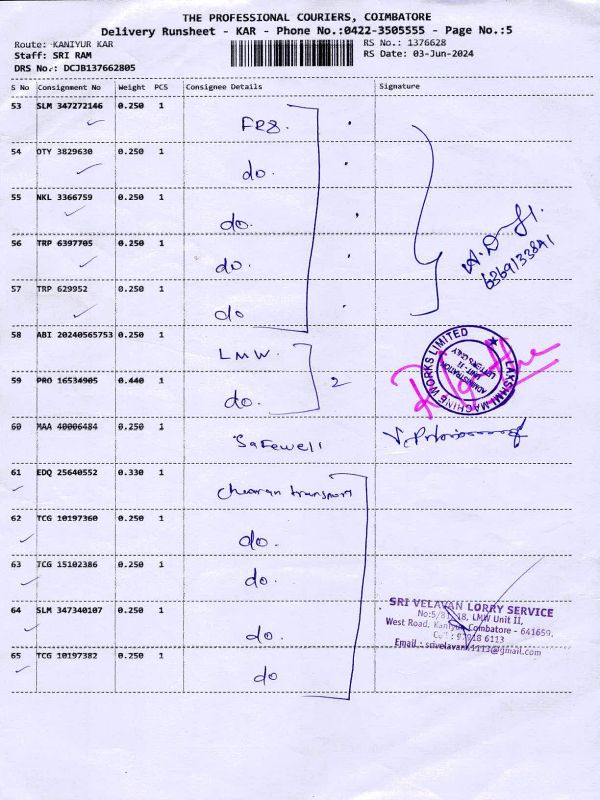 THE PROFESSIONAL COURIERS, COIMBATORE
Delivery Runsheet - KAR - Phone No.:0422-3505555 - Page No.:5
Route: KANIYUR KAR
RS No.: 1376628
Staff: SRI RAM
RS Date: 03-Jun-2024
DRS No.: DCJB137662805
S No Consignment No Weight PCS Consignee Details Signature
53 SLM 347272146 0.250 1
54 OTY 3829630 0.250 1 do.
55 NKL 3366759 0.250 1 do.
56 TRP 6397705 0.250 1 do.
57 TRP 629952 0.250 1 do
58 ABI 20240565753 0.250 1 LMW.
59 PRO 16534905 0.440 1 do. 2
60 MAA 40006484 0.250 1 Safewell
61 EDQ 25640552 0.330 1 transport
62 TCG 10197360 0.250 1 do.
63 TCG 15102386 0.250 1 do.
64 SLM 347340107 0.250 1 do.
65 TCG 10197382 0.250 1 do
LAKSHMI MACHINE WORKS LIMITED
ADMINISTRATION
UNIT - II
LETTERS ONLY
SRI VELAVAN LORRY SERVICE
LMW Unit II,
West Road, Coimbatore - 641659.